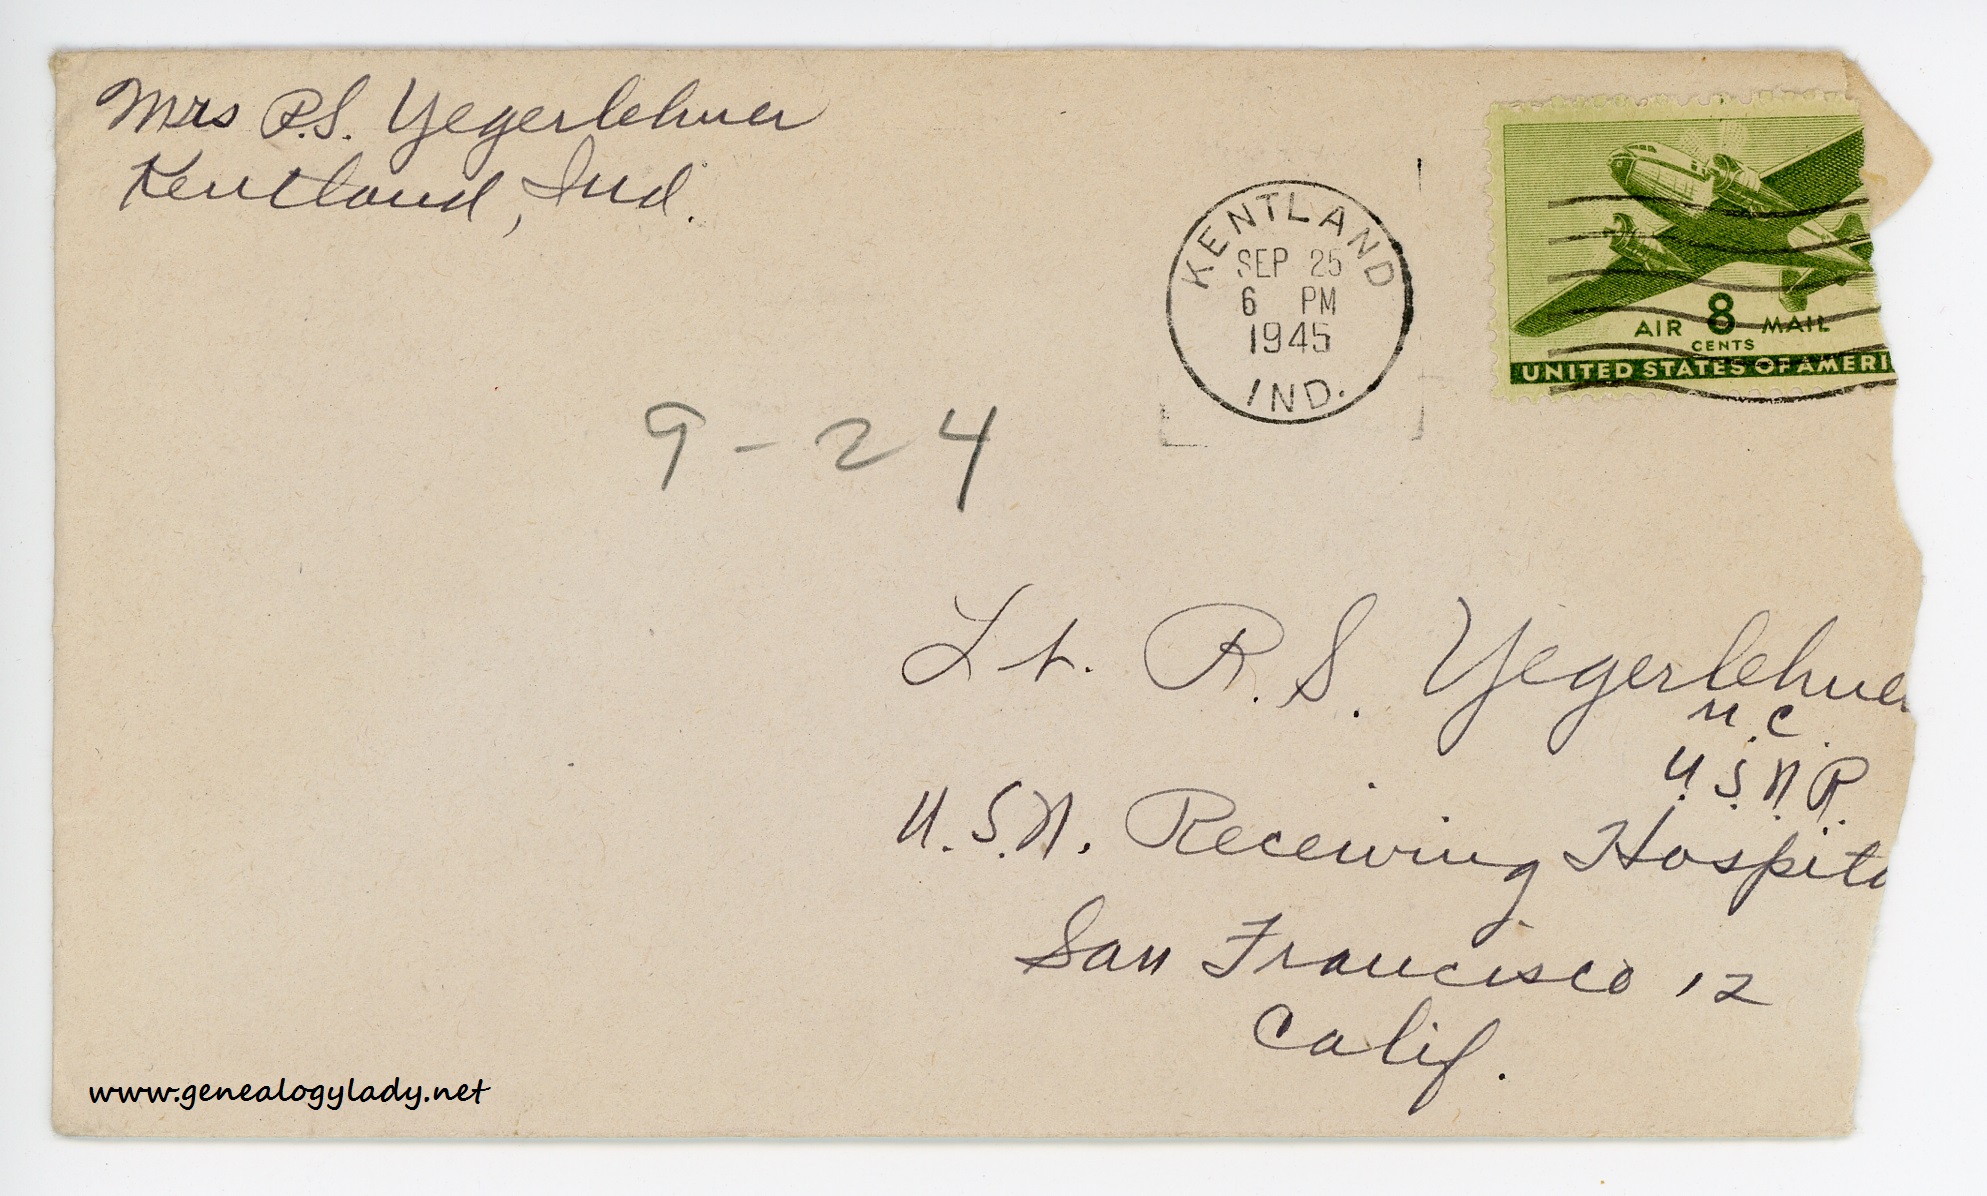 Mrs R.S. Yegerlehner
Kentland, Ind.
KENTLAND
SEP 25
6 PM
1945
IND.
AIR 8 MAIL
CENTS
UNITED STATES OF AMERI
9-24
Lt. R. S. Yegerlehner
M.C.
U.S.N.R.
U.S.N. Receiving Hospita
San Francisco 12
Calif.
www.genealogylady.net